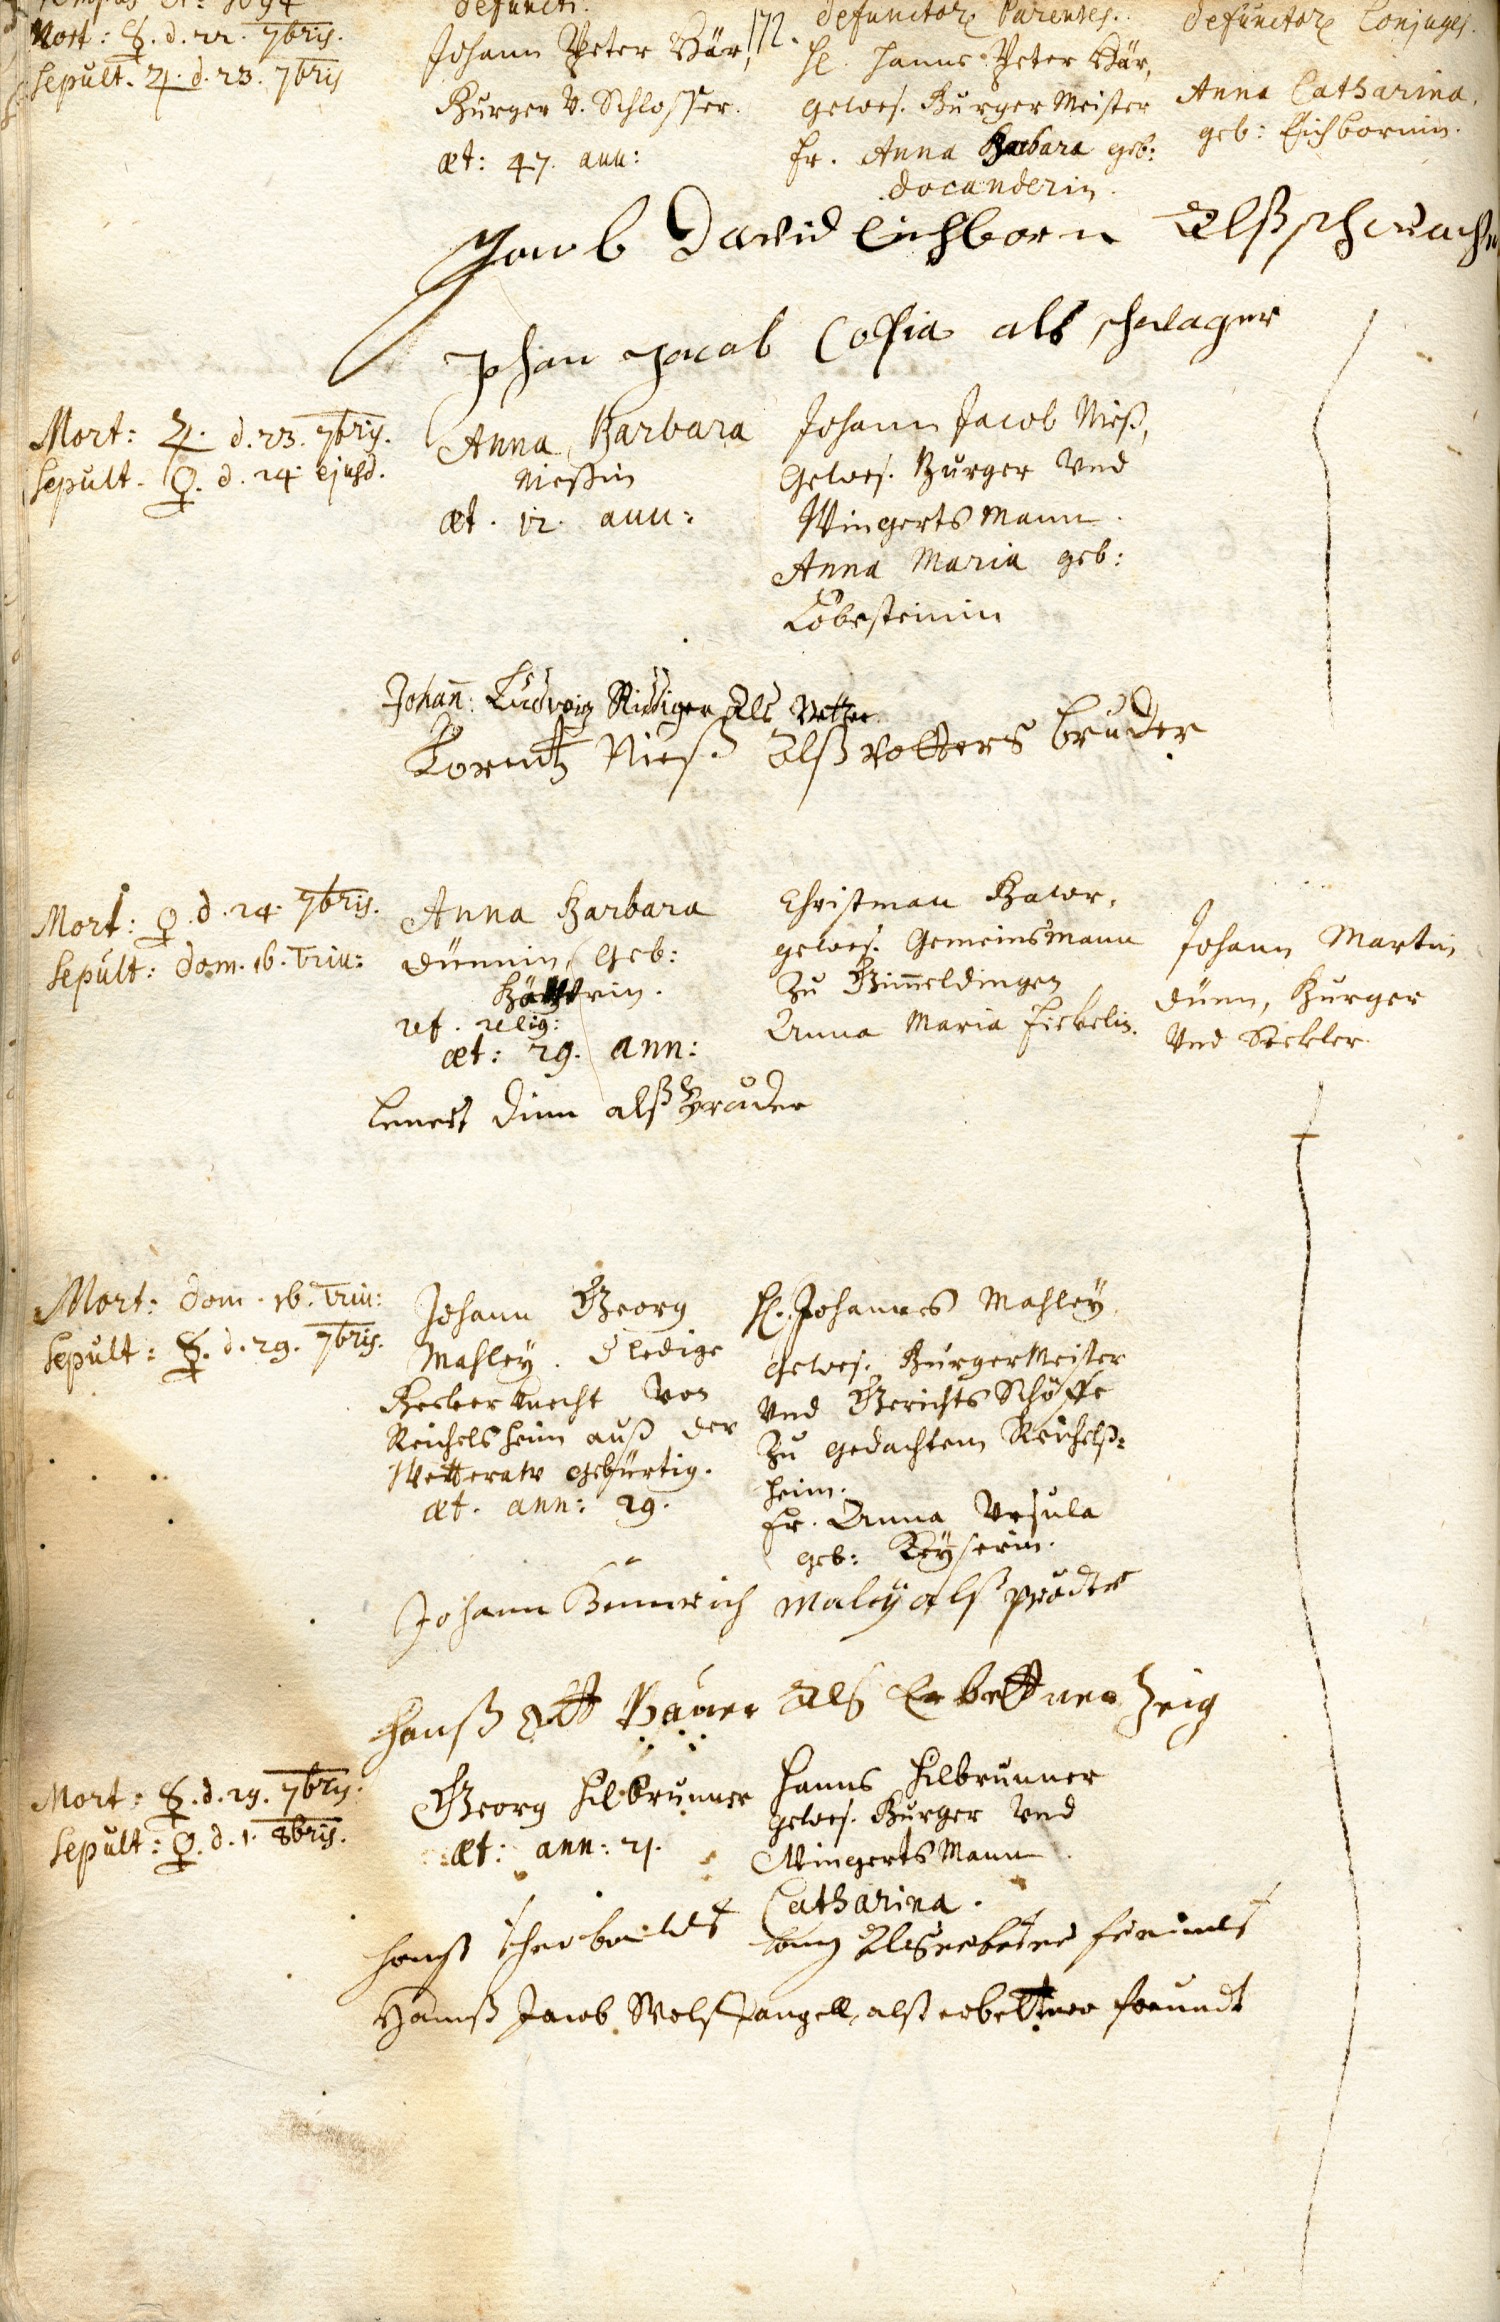 Tempus Aº: 1694 defuncti. 172. defunctorz Parentes. defunctorz Conjuges.
Mort: ☿. d. 22. 7bris.
Sepult. ♃. d. 23. 7bris
Johann Peter Bär,
Burger v. Schlosser.
æt: 47. ann:
H. Hanns Peter Bär,
gewes. Burger Meister
fr. Anna Barbara geb:
docanderin.
Anna Catharina,
geb: Eichbornin.
Jacob David Eichborn Alß
Johan Jacob als schwager
Mort: ♃. d. 23. 7bris.
Sepult. ♀. d. 24. ejusd.
Anna Barbara
Nießin
æt. 12. ann:
Johann Jacob Nieß,
Gewes. Burger Vnd
Wingerts Mann.
Anna Maria geb:
Löbesteinin
Johañ: Ludwig Rüdiger Als Vetter
Lorentz Nieß Alß vatters bruder
Mort: ♀. d. 24. 7bris.
Sepult: Dom. 16. Trin:
Anna Barbara
Dünnin, Geb:
ref. relig:
æt: 29. ann:
Christman Bawr,
gewes. Gemeinsmann
Zu Gimmeldingen
Anna Maria
Johann Martin
Dünn, Burger
Vnd Seckler.
Lenert Dinn alß Bruder
Mort: Dom. 16. Trin:
Sepult: ☿. d. 29. 7bris.
Johann Georg
Mahley. d ledige
Becker knecht von
Reichelsheim auß der
Wetteraw gebürtig.
æt. ann: 29.
H. Johannes Mahley,
gewes. BurgerMeister
Vnd Gerichts Schöffe
Zu gedachtem Reichelß-
heim.
fr. Anna Vrsula
geb: Keyserin.
Johann Heinrich Maley alß pruder
Hanß Ott Bauer Als Erbettner Zeig
Mort: ☿. d. 29. 7bris.
Sepult: ♀. d. 1. 8bris.
Georg Hilbrunner
æt: ann: 21.
Hanns Hilbrunner
gewes. Burger Vnd
Wingerts Mann
Catharina.
Hanß
Hanß Jacob Wolffangell, alß erbettner freundt